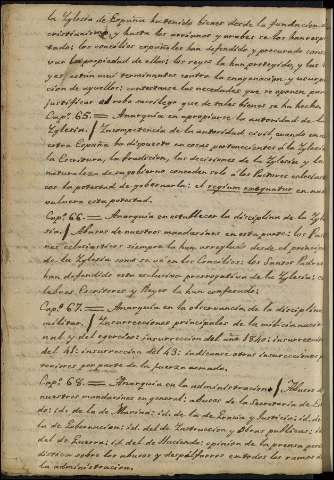 la Yglesia de España ha tenido bienes desde la fundacion d
cristianismo, y hasta los arrianos y arabes se los han resp
tado: los concilios españoles han defendido y procurado cons
var la propiedad de ellos: los reyes la han protegido, y las
yes estan muy terminantes contra la enagenacion y usurp
cion de aquellos: contestanse las necedades que se oponen para
justificar el robo sacrilego que de tales bienes se ha hecho.
Cap.º 65.= Anarquia en apropiarse la autoridad de la
Yglesia. / Yncompetencia de la autoridad civil, cuando en n
estra España ha dispuesto en cosas pertenecientes á la Yglesia
la Escritura, la tradicion, las decisiones de la Yglesia y la
naturaleza de su gobierno conceden solo á los Pastores eclesiast
cos la potestad de gobernarla: el regium exequatur en nue
vulnera esta potestad.
Cap.º 66.= Anarquia en establecer la disciplina de la Yg
sia. / Abusos de nuestros mandarines en este punto: los Pas
res eclesiasticos siempre la han arreglado desde el principio
de la Yglesia como se vé en los Concilios: los Santos Padres
han defendido esta exclusiva prerrogativa de la Yglesia: ce
lebres Escritores y Reyes la han confesado.
Cap.º 67.= Anarquia en la observancia de la disciplina
militar. / Ynsurrecciones principales de la milicia nacio
nal y del egercito: insurreccion del año 1840: insurreccion
del 41: insurreccion del 43: indicanse otras insurrecciones p
teriores por parte de la fuerza armada.
Cap.º 68.= Anarquia en la administracion. / Abusos d
nuestros mandarines en general: abusos de la Secretaria de Es
do: id. de la de Marina: id. de la de Gracia y Justicia: id. de
la de Gobernacion: id. del de Ynstruccion y Obras publicas: id
del de Guerra: id. del de Hacienda: opinion de la prensa perio
distica sobre los abusos y despilfarros en todos los ramos de
la administracion.